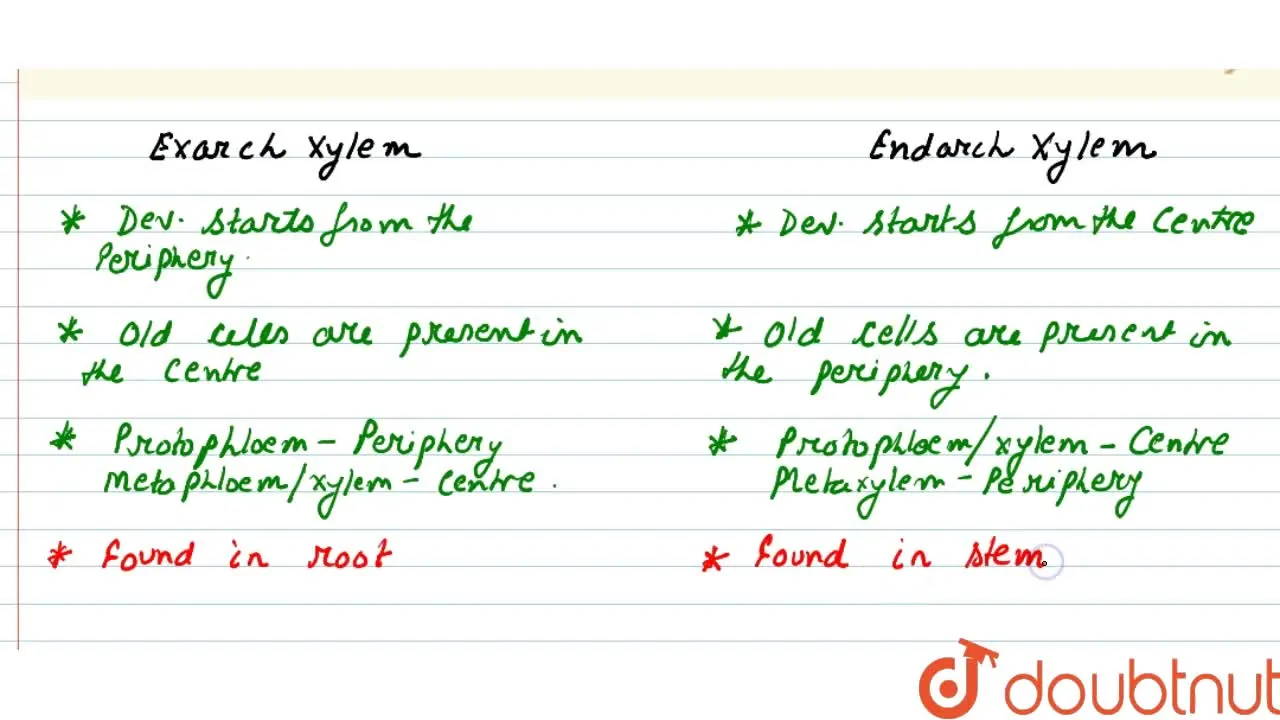 Exarch Xylem
* Dev. starts from the
Periphery.
* Old cells are present in
the centre
* Protophloem - Periphery
Metaphloem/xylem - centre.
* found in root
Endarch Xylem
* Dev. starts from the centre
* Old cells are present in
the periphery.
* Protophloem/xylem - Centre
Metaxylem - Periphery
* found in stem
doubtnut